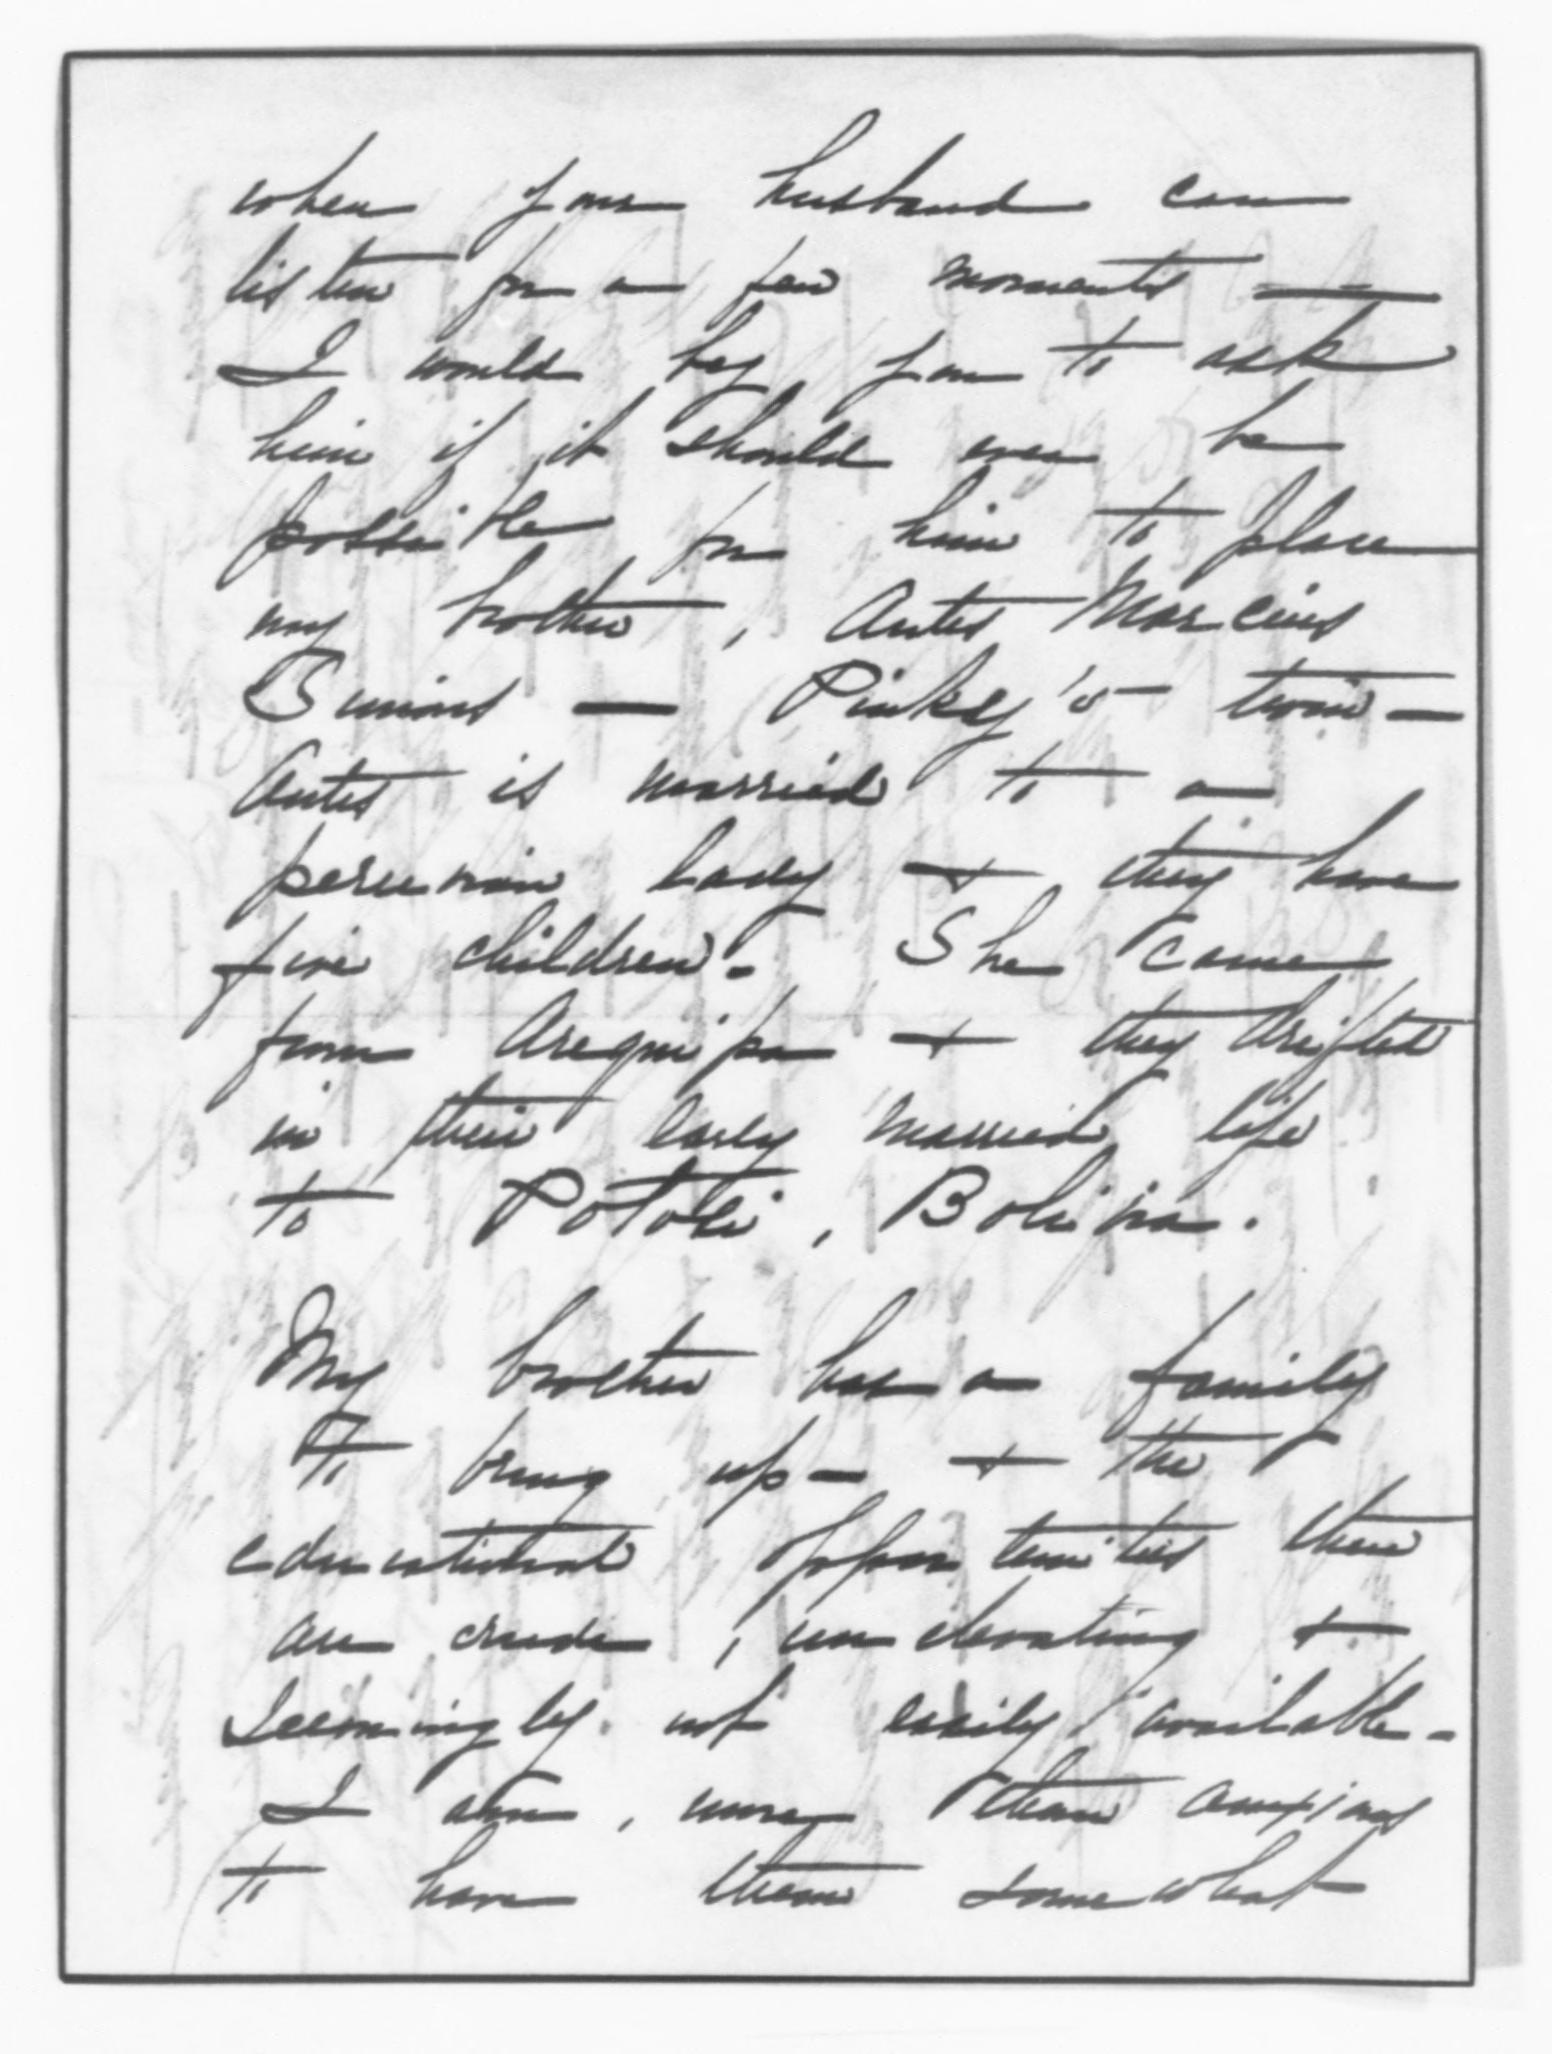 when your husband can
listen for a few moments —
I would beg you to ask
him if it should ever be
possible for him to place
my brother, Antes Marcius
— Pinkey's twin —
Antes is married to a
peruvian lady + they have
five children. She came
from Arequipa + they drifted
in their early married life
to Potosi, Bolivia.
My brother has a family
To bring up — + the
educational opportunities there
are crude, unelevating +
seemingly not easily available -
I am, more than anxious
to have them somewhat